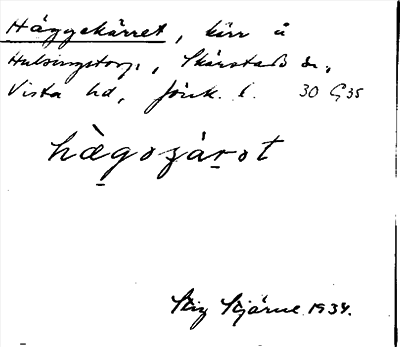 Häggekärret, kärr å
Hulsingstorp, Skärstads sn,
Vista hd, Jönk. l. 30 G 35
hægoʒárot
Stig Stjärne 1934.